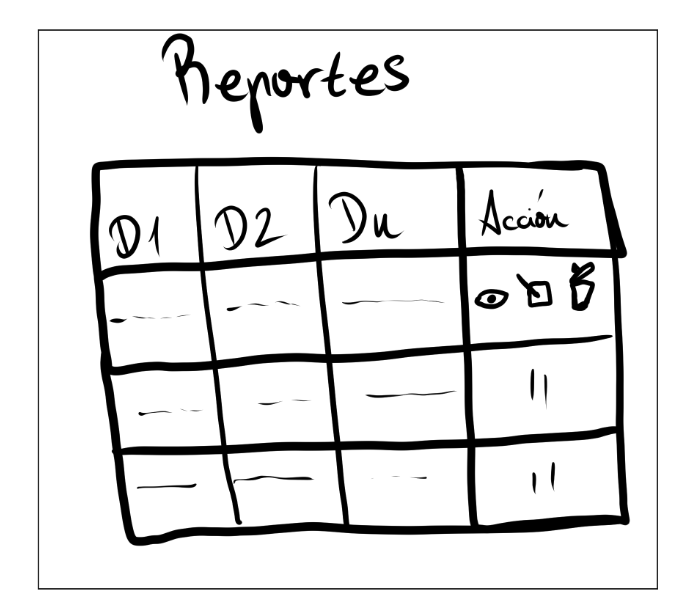 Reportes
D1 D2 Dn Acción
"
"